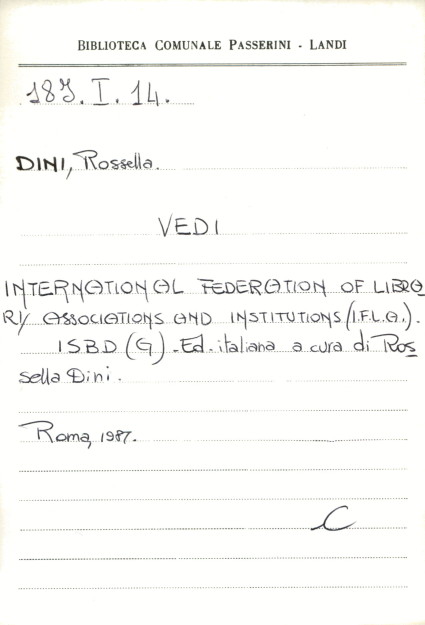 BIBLIOTECA COMUNALE PASSERINI - LANDI
189.I.14.
DINI, Rossella.
VEDI
INTERNATIONAL FEDERATION OF LIBRA
RY ASSOCIATIONS AND INSTITUTIONS (I.F.L.A.).
ISBD (G) - Ed. italiana a cura di Ros
sella Dini.
Roma, 1987.
C